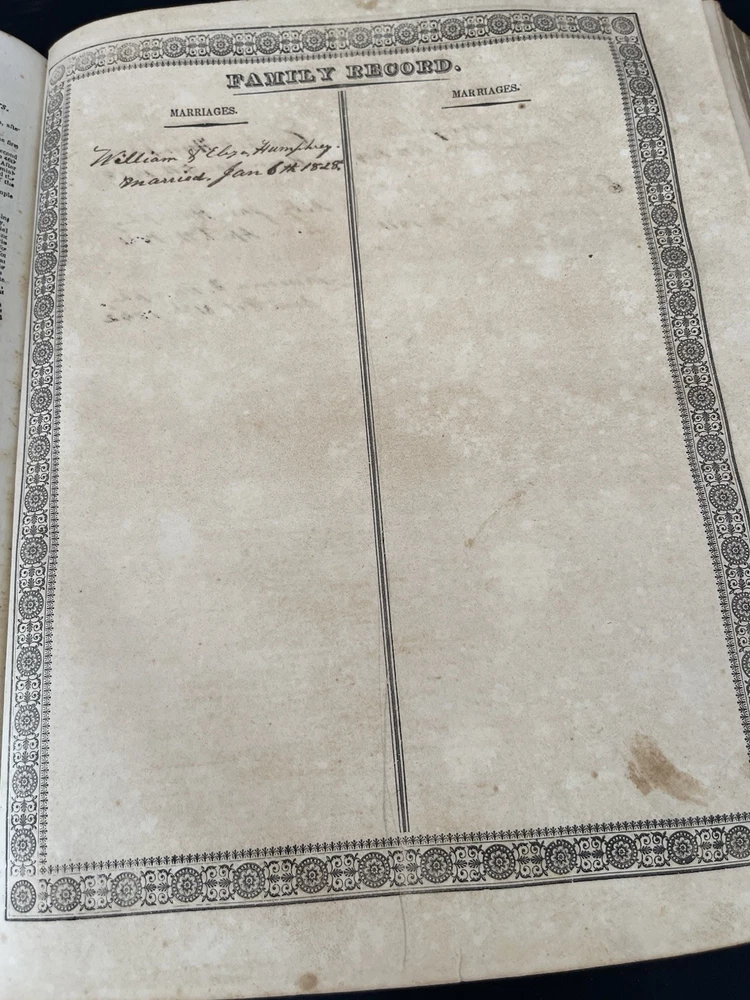 FAMILY RECORD.
MARRIAGES.
William & Eliza Humphrey.
Married, Jan 6th 1828.
MARRIAGES.